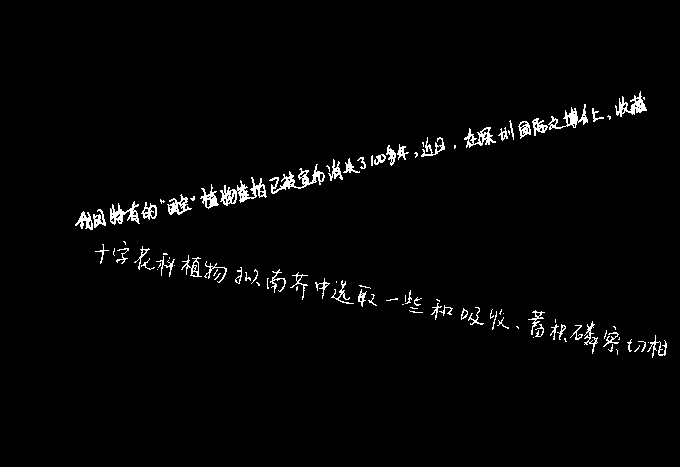 我国特有的“国宝”植物崖柏已被宣布消失了100多年,近日,在深圳国际文博会上,收藏
十字花科植物拟南芥中选取一些和吸收、蓄积磷密切相